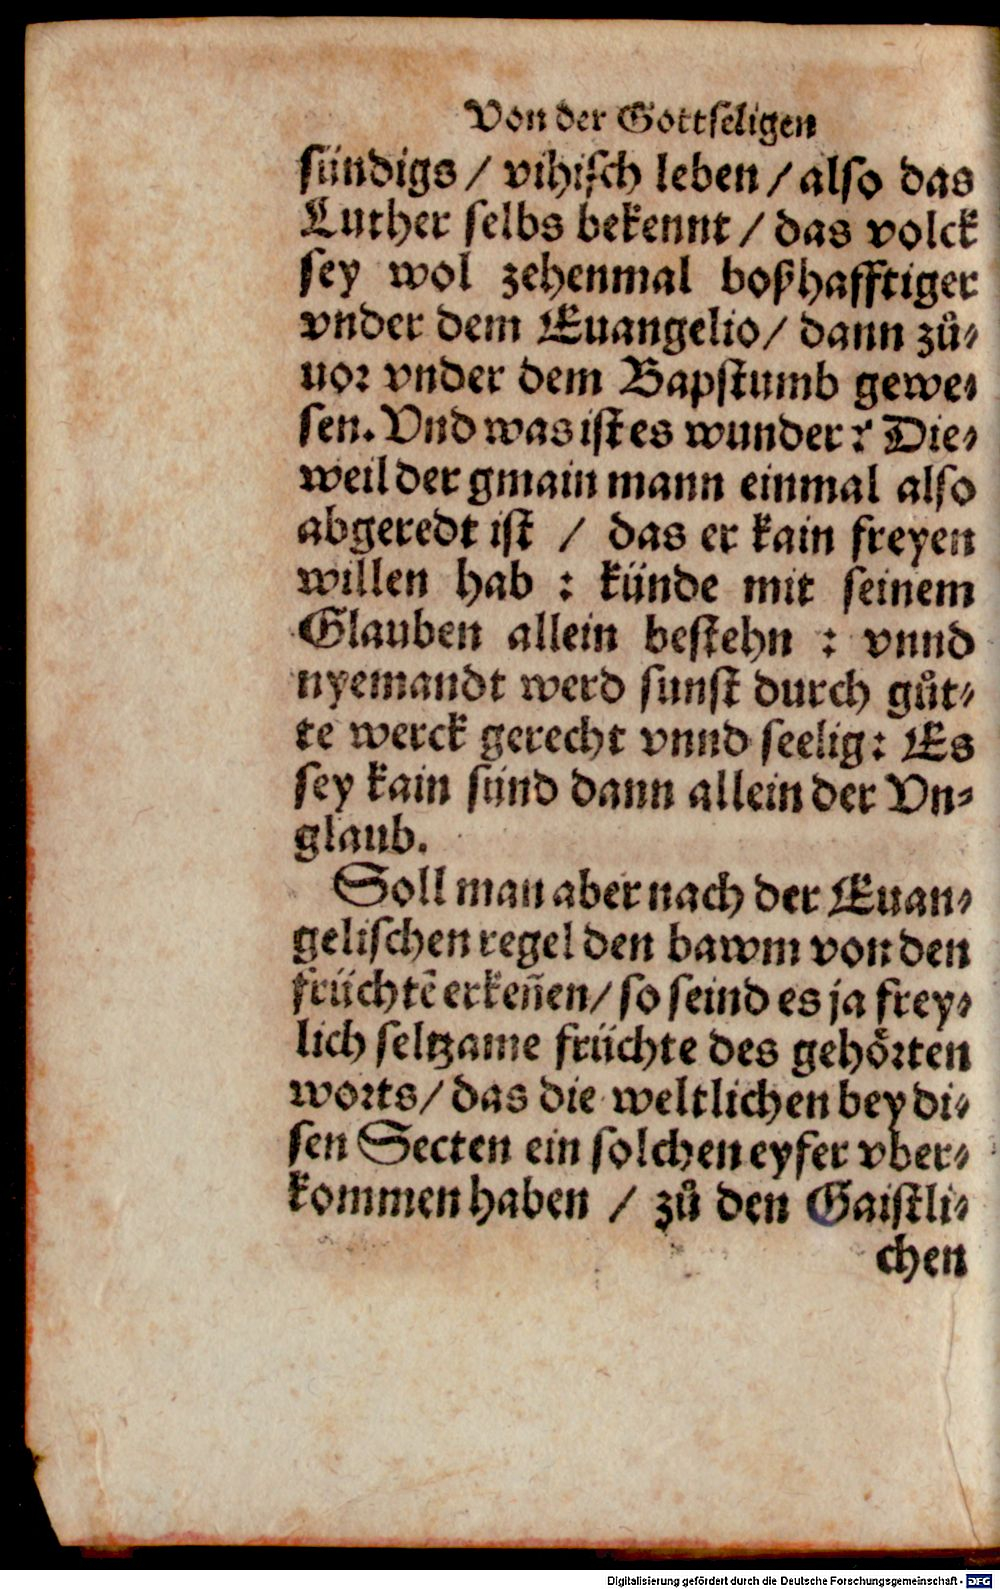 Von der Gottseligen
sündigs / vihisch leben / also das
Luther selbs bekennt / das volck
sey wol zehenmal boßhafftiger
vnder dem Euangelio / dann zů⸗
uor vnder dem Bapstumb gewe⸗
sen. Vnd was ist es wunder? Die⸗
weil der gmain mann einmal also
abgeredt ist / das er kain freyen
willen hab : künde mit seinem
Glauben allein bestehn : vnnd
nyemandt werd sunst durch gůt⸗
te werck gerecht vnnd seelig: Es
sey kain sünd dann allein der Vn⸗
glaub.
Soll man aber nach der Euan⸗
gelischen regel den bawm von den
früchtē erkeñen / so seind es ja frey⸗
lich seltzame früchte des gehörten
worts / das die weltlichen bey di⸗
sen Secten ein solchen eyfer vber⸗
kommen haben / zů den Gaistli⸗
chen
Digitalisierung gefördert durch die Deutsche Forschungsgemeinschaft - DFG